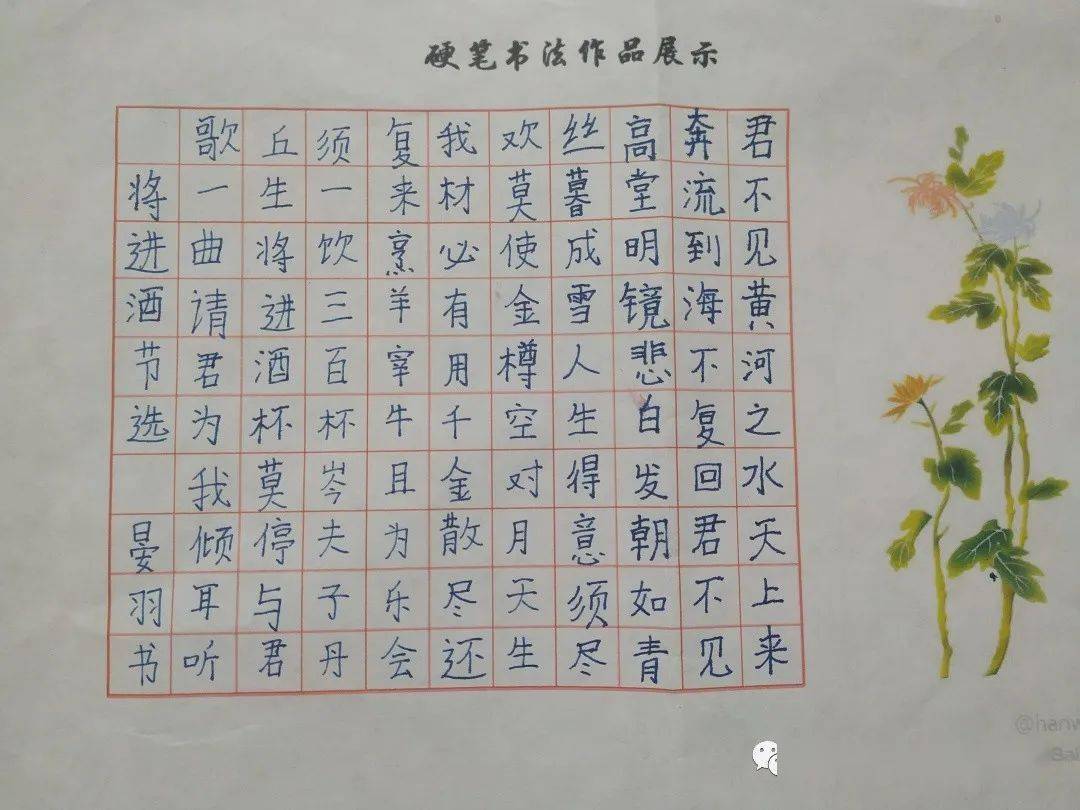 硬笔书法作品展示
君不见黄河之水天上来
奔流到海不复回君不见
高堂明镜悲白发朝如青
丝暮成雪人生得意须尽
欢莫使金樽空对月天生
我材必有用千金散尽还
复来烹羊宰牛且为乐会
须一饮三百杯岑夫子丹
丘生将进酒杯莫停与君
歌一曲请君为我倾耳听
将进酒节选 晏羽书